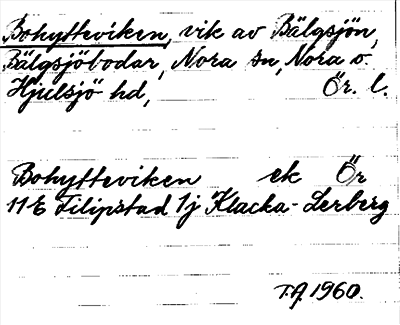 Bohytteviken, vik av Bälgsjön,
Bälgsjöbodar, Nora sn, Nora o.
Hjulsjö hd, Ör. l.
Bohytteviken ek Ör
11 E Filipstad 1j Klacka-Lerberg
T.A. 1960.